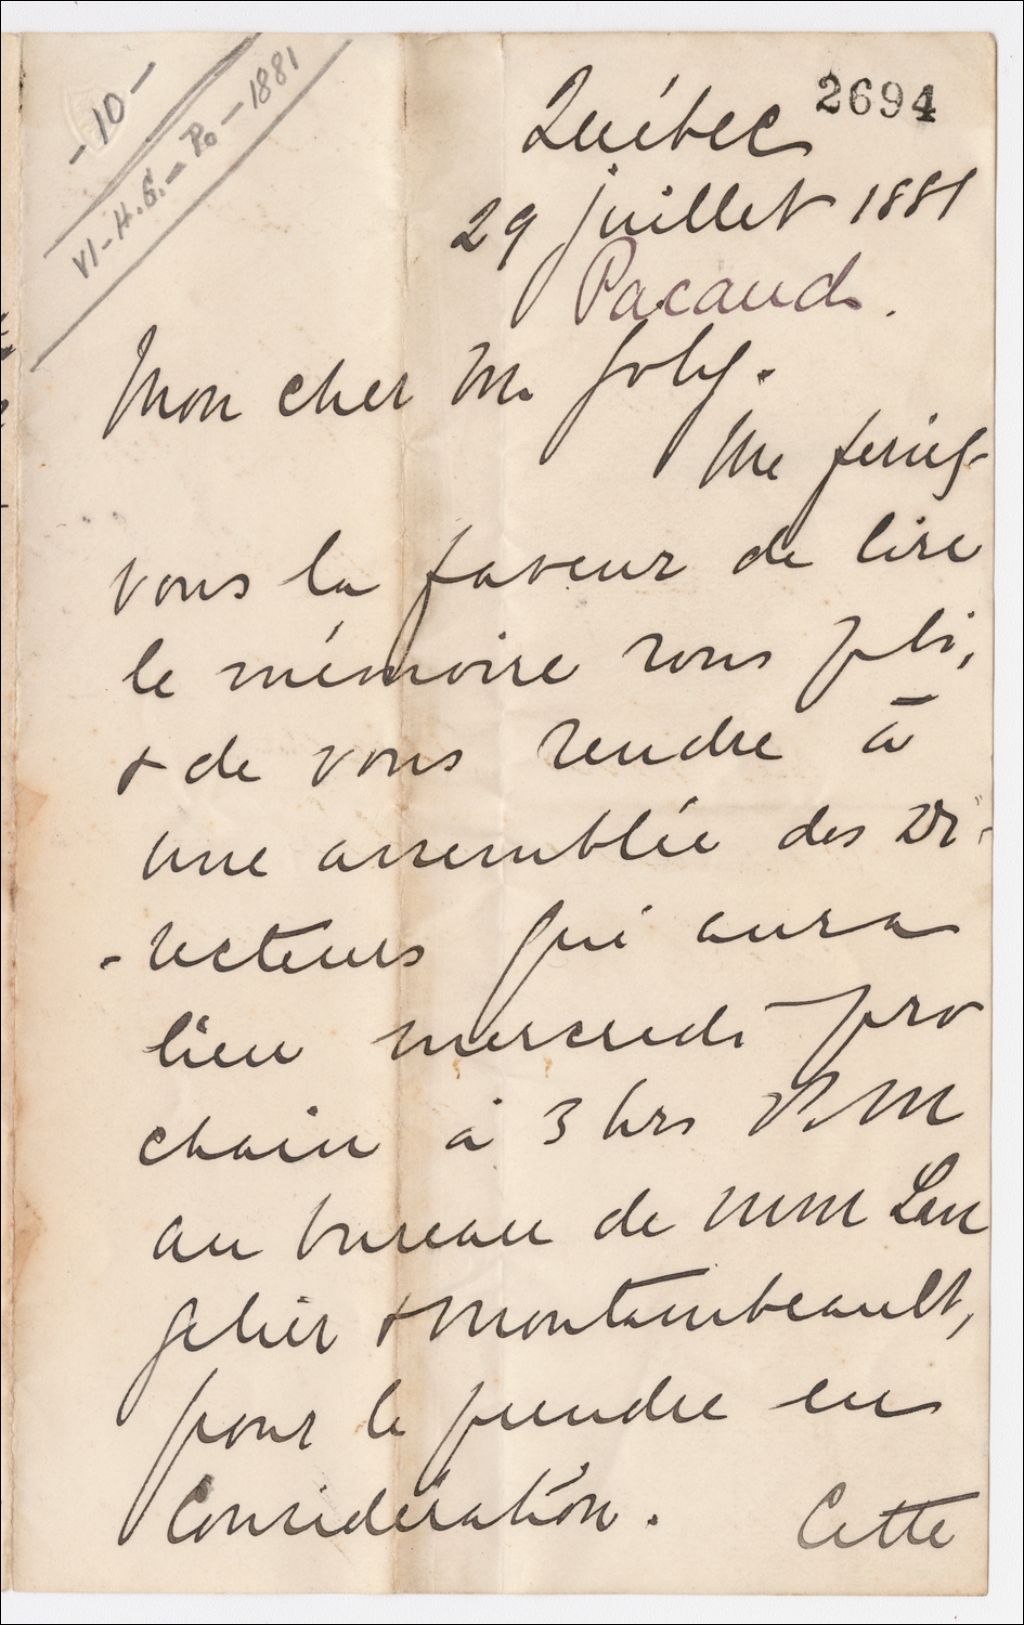 - 10 -
VI - H. G. - Po - 1881
2694
Québec
29 juillet 1881
Pacaud.
Mon cher M. Joly.
Me feriez-
vous la faveur de lire
le mémoire sous pli,
+ de vous rendre à
une assemblée des Di-
-recteurs qui aura
lieu mercredi pro
chain à 3 hrs P.M
au bureau de MM Lan
gelier + Montambeault,
pour le prendre en
Considération. Cette